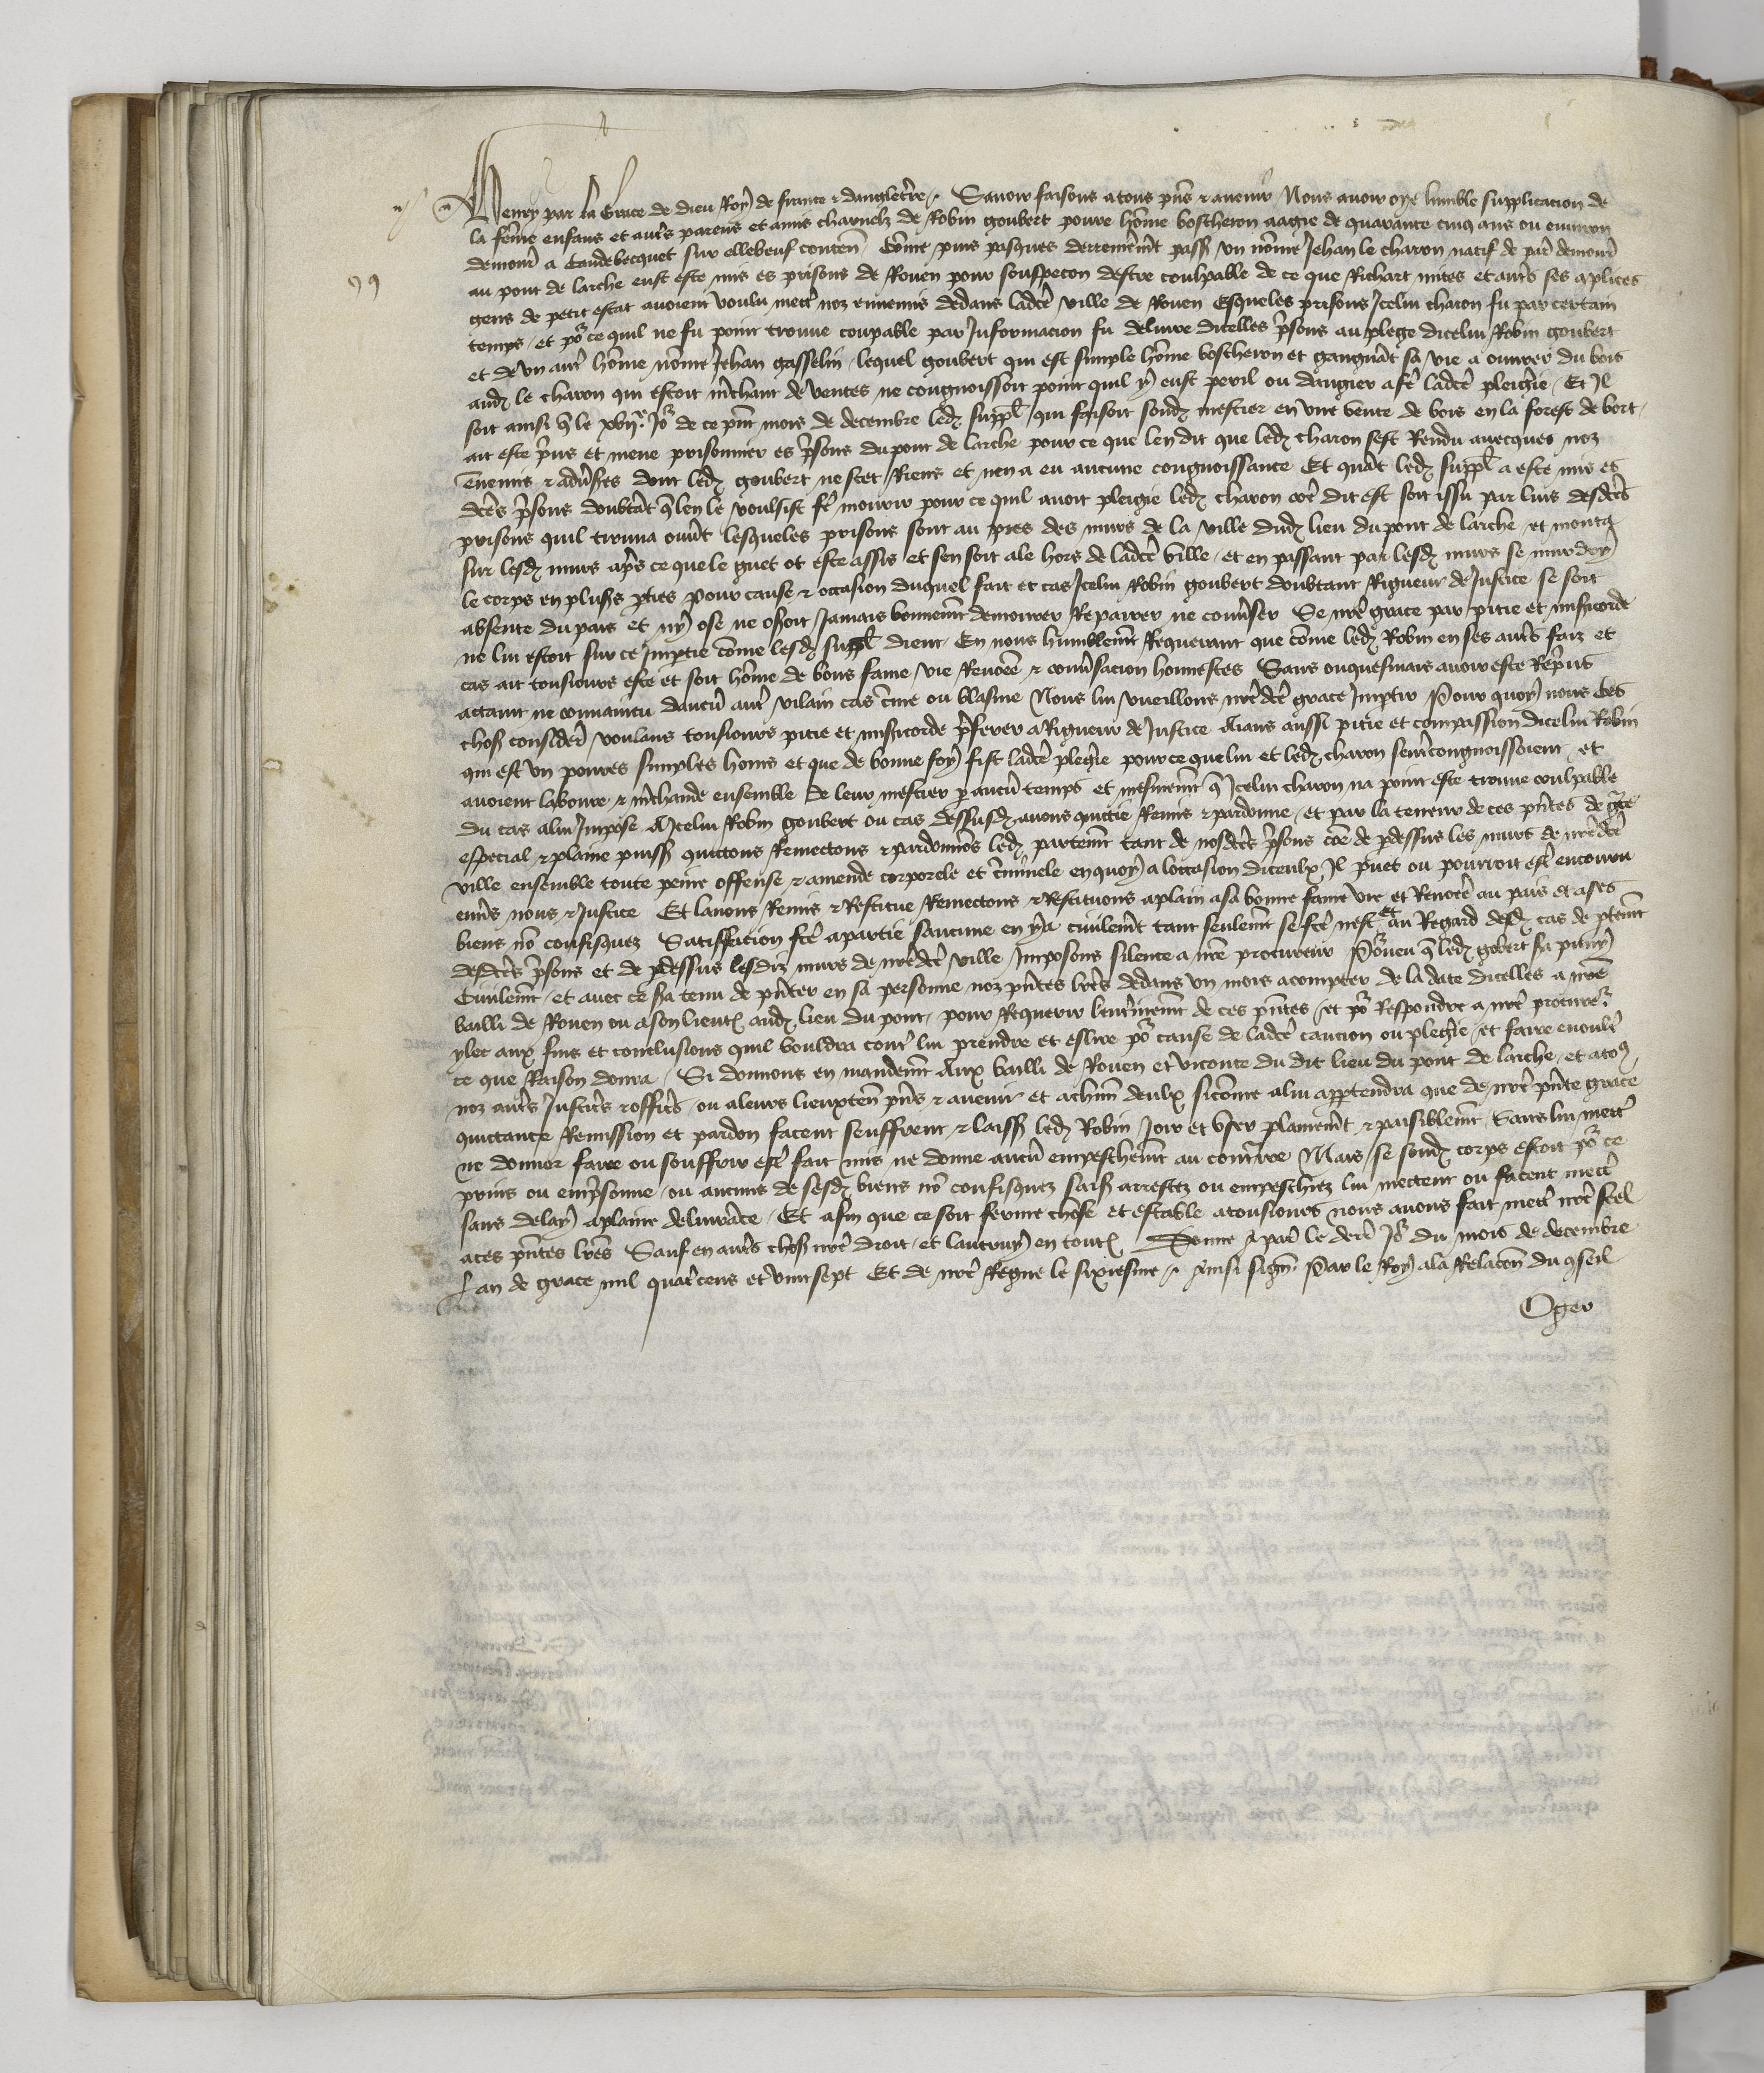 Henry par la Grace de dieu Roy de france & dangleterre. Savoir faisons a tous pns & avenir Nous avoir oye lumble supplicacion de
la feme enfans et autrs parens et amis charnelz de Robin goubert povre home boscheron aagie de quarante cinq ans ou environ
demour a Caudebecquet sur ellebeuf conten Come puis pasques derrenemt pass un nome Jehan le charon natif de par demour
99
au pont de larche eust este mis es prisons de Rouen pour souspecon destre coulpable de ce que Richart mites et autrs ses aplices
gens de petit estat avoient voulu mettr noz ennemis dedans ladce ville de Rouen Esqueles prisons Icelui charon fu par certain
temps et por ce quil ne fu point trouve coupable par Informacion fu delivre dicelles prsons au plege dicelui Robin goubert
et de un autr home nome Jehan gasselin lequel goubert qui est simple home boscheron et gangnat sa vie a ouvrer du bois
aud le charon qui estoit mchant de ventes ne congnoissoit point quil y eust peril ou dangier a fe ladce pleigie Et Il
soit ainsi q le xvije Jor de ce pnt mois de decembre led suppl qui faisoit sond mestier en une vente de bois en la forest de bort
ait este pris et mene prisonnier es prsons du pont de larche pour ce que len dit que led charon sest Rendu avecques noz
Ennemis & advsres dont led goubert ne scet Riens et nen a eu aucune congnoissance Et quat led suppl a este mis es
dces prsons doubtat q len le voulsist fe mourir pour ce quil avoit pleigie led charon coe dit est soit issu par luis desdces
prisons quil trouva ouvt lesqueles prisons sont au pres des murs de la ville dud lieu du pont de larche et monta
sur lesd murs aprs ce que le guet ot este assis et sen soit ale hors de ladce ville et en passant par lesd murs se murdry
le corps en plusrs pties Pour cause & occasion duquel fait et cas Icelui Robin goubert doubtant Rigueur de Justice se soit
absente du pais et ny ose ne oseroit Jamais bonnemt demourer Reparrer ne convser Se nre grace par pitie et misicorde
ne lui estoit sur ce Imptie come lesd suppl dient En nous humblemt Requerant que come led Robin en ses autrs faiz et
cas ait tousiours este et soit home de bone fame vie Renoee & convsacion honnestes Sans onquesmais avoir este Repris
attaint ne convaincu daucu autr vilain cas cme ou blasme Nous lui vueillons nredce grace Imptir Pour quoy nous ces
chos consider voulans tousiours pitie et misicorde prferer a Rigueur de Justice Aians aussi pitie et compassion dicelui Robin
qui est un povres simples homs et que de bonne foy fist ladce plegie pour ce que lui et led charon sentrcongnoissoient et
avoient laboure & mchande ensemble de leur mestier p aucu temps et mesmemt q Icelui charon na point este trouve coulpable
du cas a lui Impose A Icelui Robin goubert ou cas dessusd avons quictie Remis & pardonne et par la teneur de ces pntes de gce
especial & plaine puiss quictons Remectons & pardonnos led partemt tant de nosdces prsons coe de pdessus les murs de nredce
ville ensemble toute peine offense & amende corporele et crimnele en quoy a loccasion diceulx Il puet ou pourroit estr encouru
envs nous & Justice Et lavons Remis & Restitue Remectons & Restituons a plain a sa bonne fame vie et Renoee au pais et a ses
biens no confisquez Satisfacion fce a partie saucune en y a civilemt tant seulemt se fce nest et au Regard desd cas de ptemt
desdces prsons et de pdessus lesdiz murs de nredce ville Imposons silence a nre procureur Porveu q led gobert sa puny
Civilemt et avec ce sra tenu de pnter en sa personne noz pntes lres dedans un mois acompter de la date dicelles a nre
bailli de Rouen ou a son lieut aud lieu du pont pour Requerir lentrinemt de ces pntes et por Respondre a nre procurer
ylec aux fins et conclusions quil vouldra contr lui prendre et eslire por cause de ladce caucion ou plegie et faire enoultr
ce que Raison donra Si donnons en mandemt Aux bailli de Rouen et viconte du dit lieu du pont de larche et a tos
noz autrs Justics & officrs ou a leurs lieuxten pns & avenir et a chun deulx sicome a lui apptendra que de nre pnte grace
quictance Remission et pardon facent seuffrent & laiss led Robin Joir et user plainemt & paisiblemt Sans lui mettr
ne donner faire ou souffrir estr fait mis ne donne aucu empeschemt au contraire Mais se sond corps estoit por ce
prins ou emprsonne ou aucuns de sesd biens no confisquez saisis arrestez ou empeschiez lui mectent ou facent mectr
sans delay a plaine delivrace Et afin que ce soit ferme chose et estable a tousiours nous avons fait mectr nre seel
a ces pntes lres Sauf en autrs chos nre droit et lautruy en tout Donne a par le derr Jor du mois de decembre
Lan de grace mil quatrcens et vint sept Et de nre Regne le sixiesme. Ainsi sign Par le Roy a la Relacon du qseil
Oger